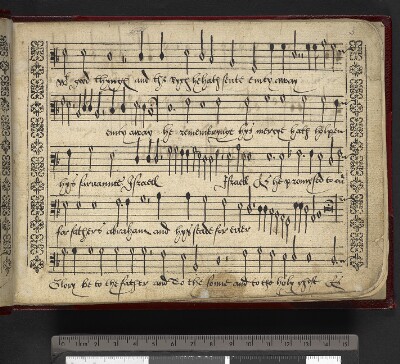 good thyngs and the rych he hath sente emty away
emty away he remembrynge hys mercye hath holpen
hys servaunte Israell Israell &c he promysed to ou
forfathers abraham and hys seade for ever
Glory be to the father and to the sonne and to the holy ghost &c